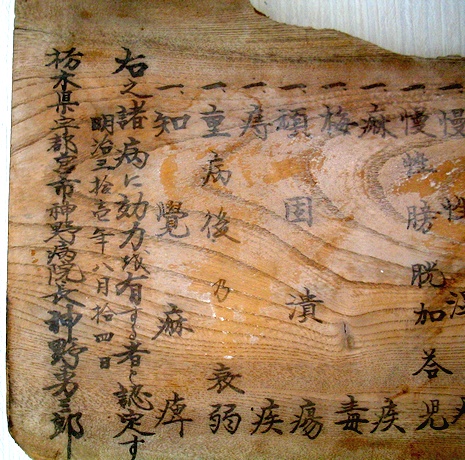 慢性
一 慢性膀胱加答児
一 麻疾
一 梅毒
一 頑固潰瘍
一 痔疾
一 重病後乃衰弱
一 知覺麻痺
右之諸病に効力を有する者と認定す
明治三拾壱年八月拾四日
栃木県宇都宮市神野病院長神野寿三郎